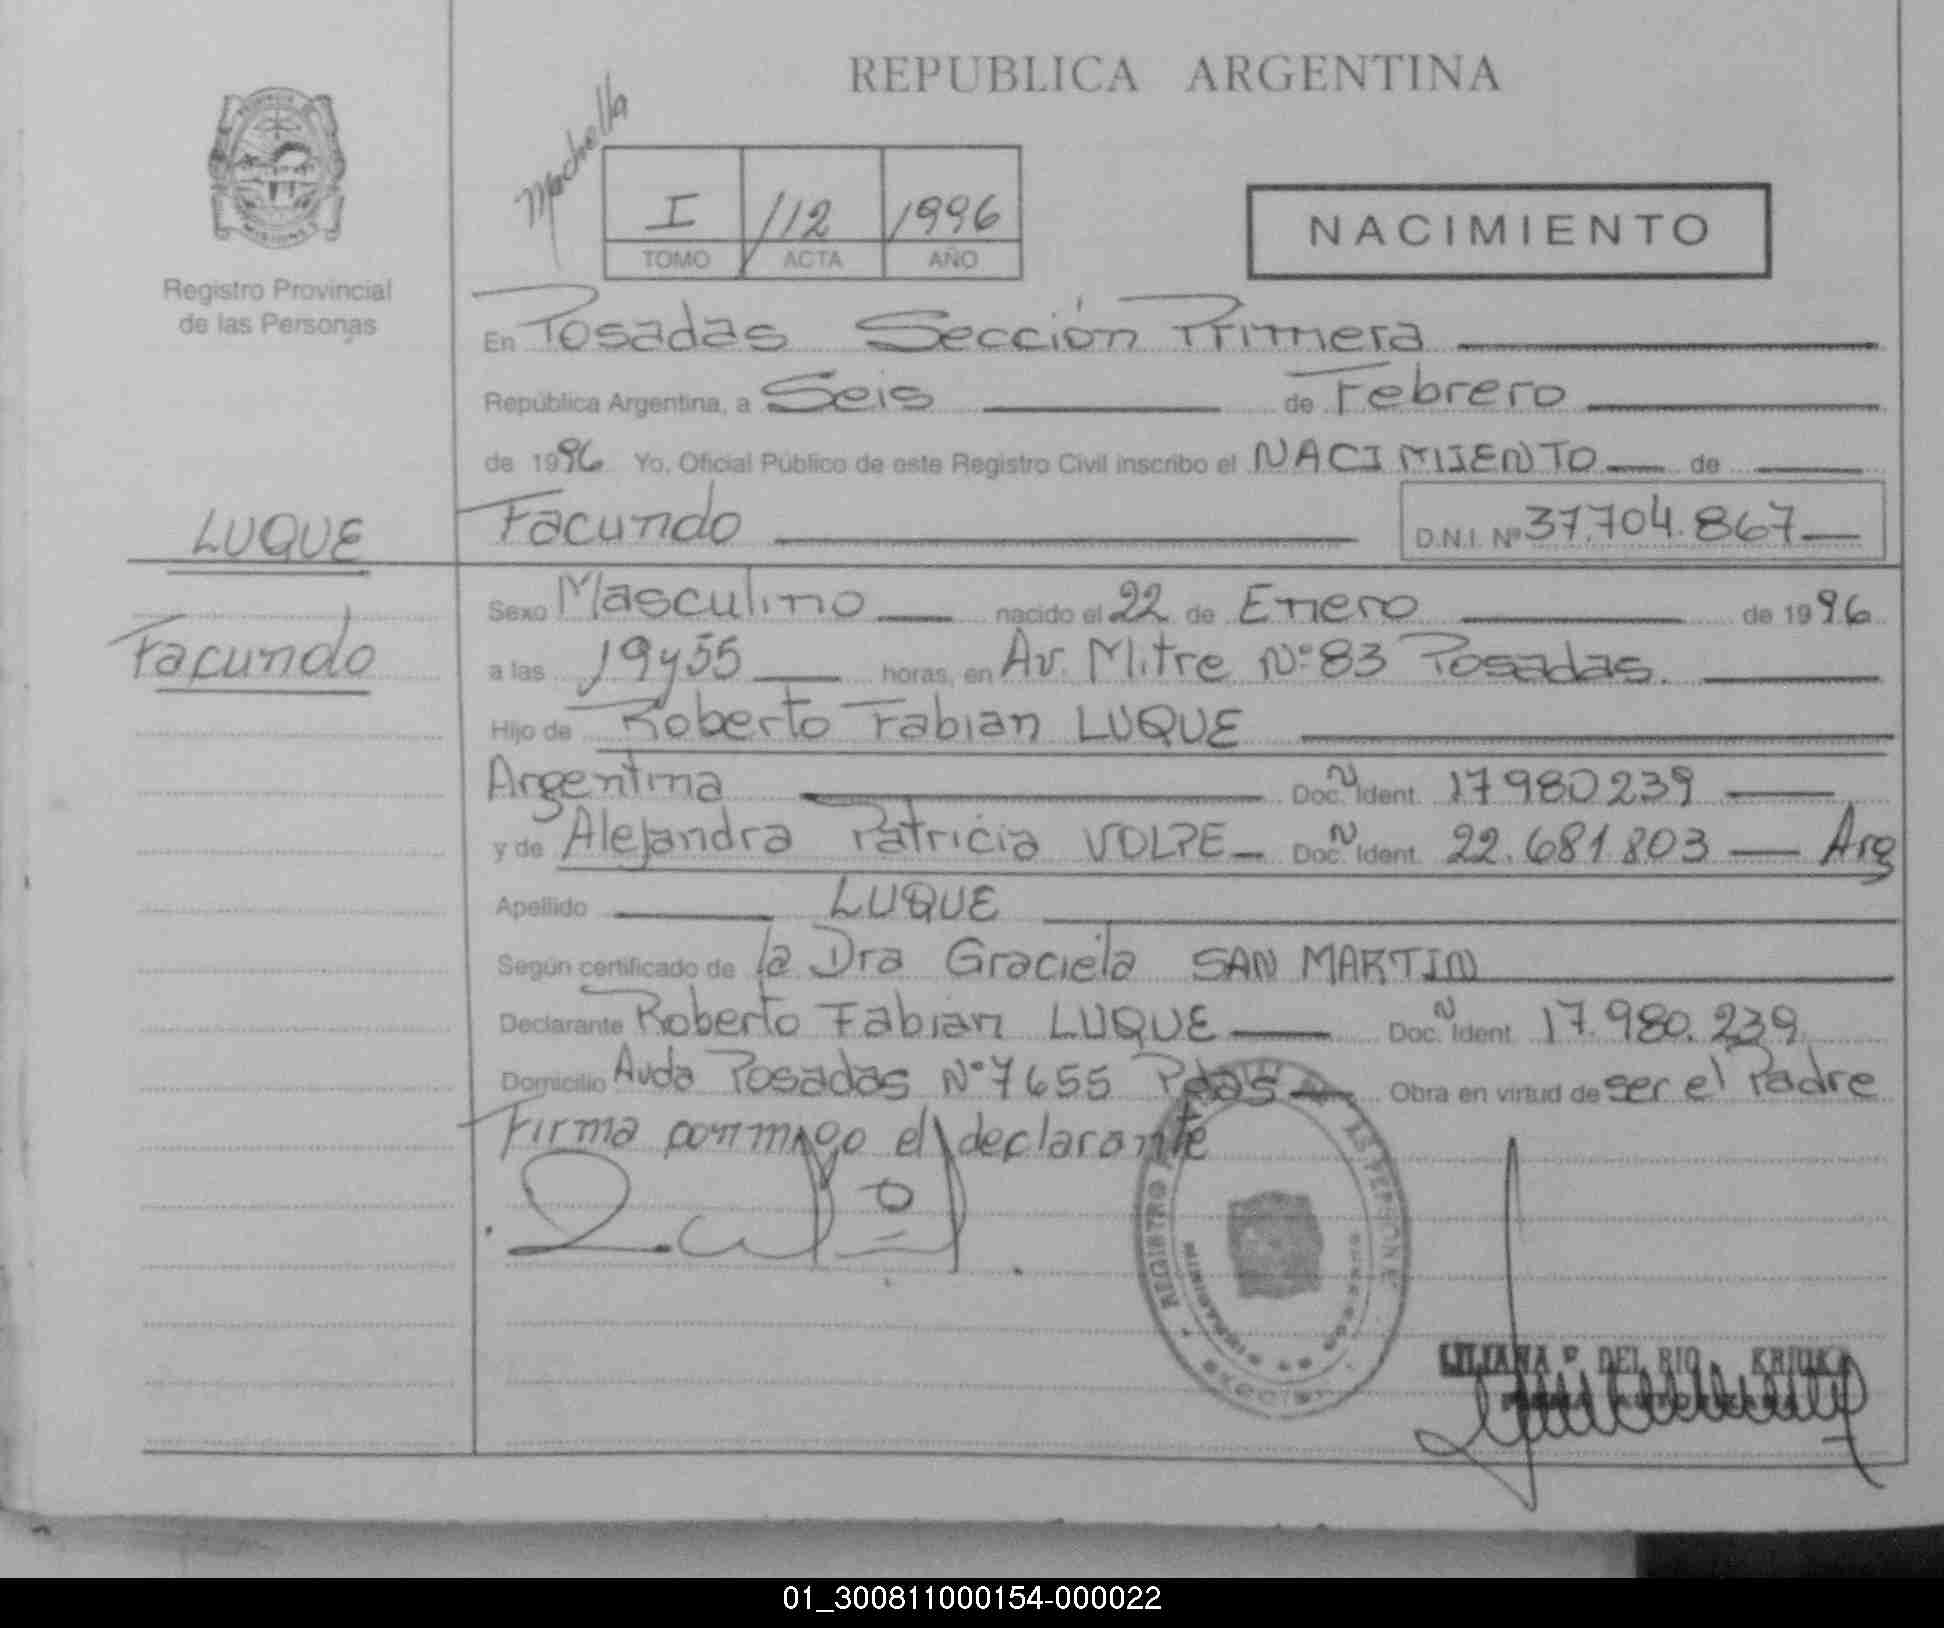 REPUBLICA ARGENTINA
Registro Provincial
de las Personas
I /112 1996
TOMO ACTA AÑO
NACIMIENTO
En Posadas Sección Primera
República Argentina, a Seis de Febrero
de 1996 Yo, Oficial Público de este Registro Civil inscribo el NACIMIENTO de
LUQUE
Facundo
Facundo D.N.I. Nº 37.704.867
Sexo Masculino nacido el 22 de Enero de 1996
a las 19 y 55 horas, en Av. Mitre Nº 83 Posadas.
Hijo de Roberto Fabian LUQUE
Argentina Doc. N Ident. 17980239
y de Alejandra Patricia VOLPE Doc. N Ident. 22.681.803 Arg
Apellido LUQUE
Según certificado de la Dra Graciela SAN MARTIN
Declarante Roberto Fabian LUQUE Doc. N Ident. 17.980.239
Domicilio Avda Posadas Nº 7655 Pdas Obra en virtud de ser el Padre
Firma conmigo el declarante
REGISTRO
LILIANA DEL RIO
01_300811000154-000022